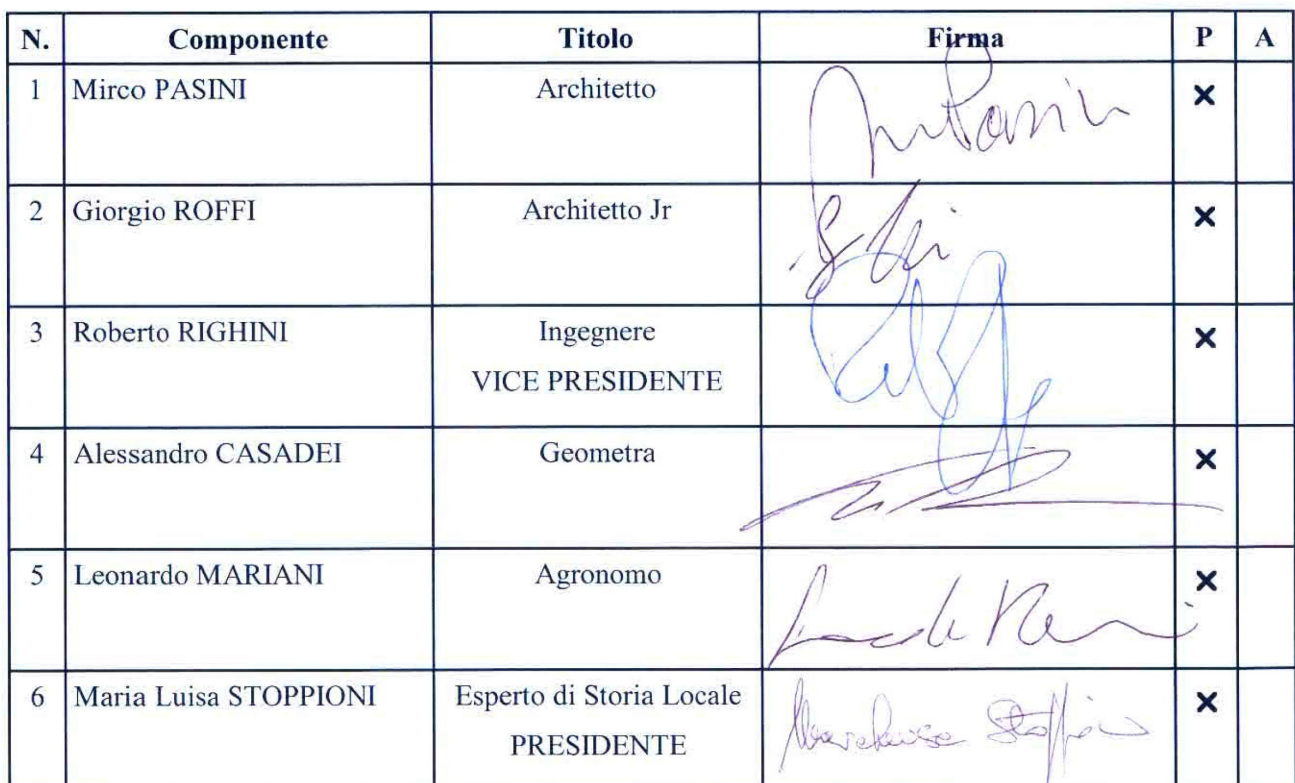 N. Componente Titolo Firma P A
1 Mirco PASINI Architetto ×
2 Giorgio ROFFI Architetto Jr ×
3 Roberto RIGHINI Ingegnere ×
VICE PRESIDENTE
4 Alessandro CASADEI Geometra ×
5 Leonardo MARIANI Agronomo ×
6 Maria Luisa STOPPIONI Esperto di Storia Locale ×
PRESIDENTE